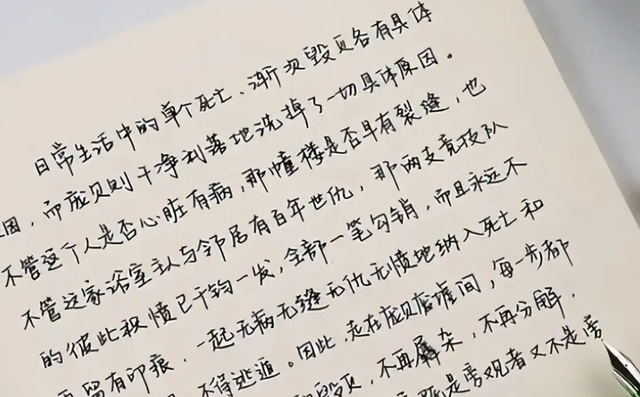 日常生活中的单个死亡、渐次毁灭各有具体
因，而庞贝则干净利落地洗掉了一切具体原因。
不管这个人是否心脏有病，那幢楼是否早有裂缝，也
不管这家浴室主人与邻居有百年世仇，那两支竞技队
的彼此积愤已千钧一发，全部一笔勾销，而且永远不
再留有印痕，一起无病无缝无仇无愤地纳入死亡和
不得逃遁。因此，走在庞贝废墟间，每一步都
的毁灭，不再羼杂，不再分解，
是旁观者又不是旁